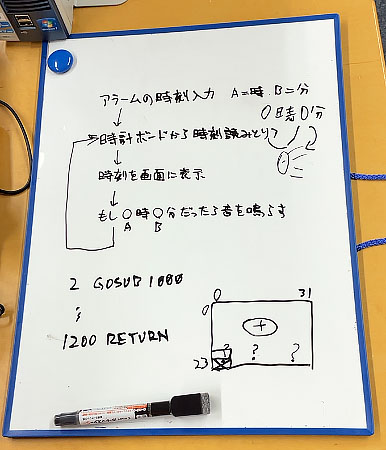 アラームの時刻入力 A=時 B=分
0時0分
時計ボードから時刻読みとり
時刻を画面に表示
もし○時○分だったら音を鳴らす
A B
2 GOSUB 1000
1200 RETURN
0 31
0
+
? ? ?
23